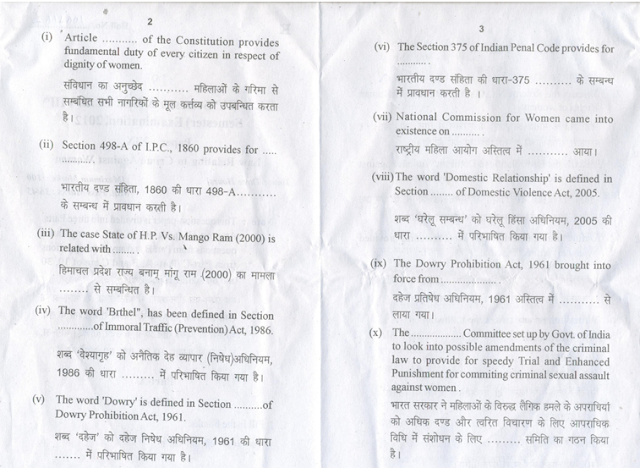 2
(i) Article ........... of the Constitution provides
fundamental duty of every citizen in respect of
dignity of women.
संविधान का अनुच्छेद ........... महिलाओं के गरिमा से
सम्बंधित सभी नागरिकों के मूल कर्त्तव्य को उपबन्धित करता
है।
(ii) Section 498-A of I.P.C., 1860 provides for .....
...........
भारतीय दण्ड संहिता, 1860 की धारा 498-A...........
के सम्बन्ध में प्रावधान करती है।
(iii) The case State of H.P. Vs. Mango Ram (2000) is
related with ....... .
हिमाचल प्रदेश राज्य बनाम् मांगू राम (2000) का मामला
........ से सम्बन्धित है।
(iv) The word 'Brthel", has been defined in Section
............of Immoral Traffic (Prevention) Act, 1986.
शब्द 'वेश्यागृह' को अनैतिक देह व्यापार (निषेध)अधिनियम,
1986 की धारा ......... में परिभाषित किया गया है।
(v) The word 'Dowry' is defined in Section ..........of
Dowry Prohibition Act, 1961.
शब्द 'दहेज' को दहेज निषेध अधिनियम, 1961 की धारा
....... में परिभाषित किया गया है।
3
(vi) The Section 375 of Indian Penal Code provides for
........... .
भारतीय दण्ड संहिता की धारा-375 .......... के सम्बन्ध
में प्रावधान करती है ।
(vii) National Commission for Women came into
existence on .......... .
राष्ट्रीय महिला आयोग अस्तित्व में ........... आया।
(viii) The word 'Domestic Relationship' is defined in
Section ........ of Domestic Violence Act, 2005.
शब्द 'घरेलू सम्बन्ध' को घरेलू हिंसा अधिनियम, 2005 की
धारा .......... में परिभाषित किया गया है।
(ix) The Dowry Prohibition Act, 1961 brought into
force from.................... .
दहेज प्रतिषेध अधिनियम, 1961 अस्तित्व में ........... से
लाया गया।
(x) The.................... Committee set up by Govt. of India
to look into possible amendments of the criminal
law to provide for speedy Trial and Enhanced
Punishment for commiting criminal sexual assault
against women .
भारत सरकार ने महिलाओं के विरुद्ध लैंगिक हमले के अपराधियों
को अधिक दण्ड और त्वरित विचारण के लिए आपराधिक
विधि में संशोधन के लिए ......... समिति का गठन किया
है।